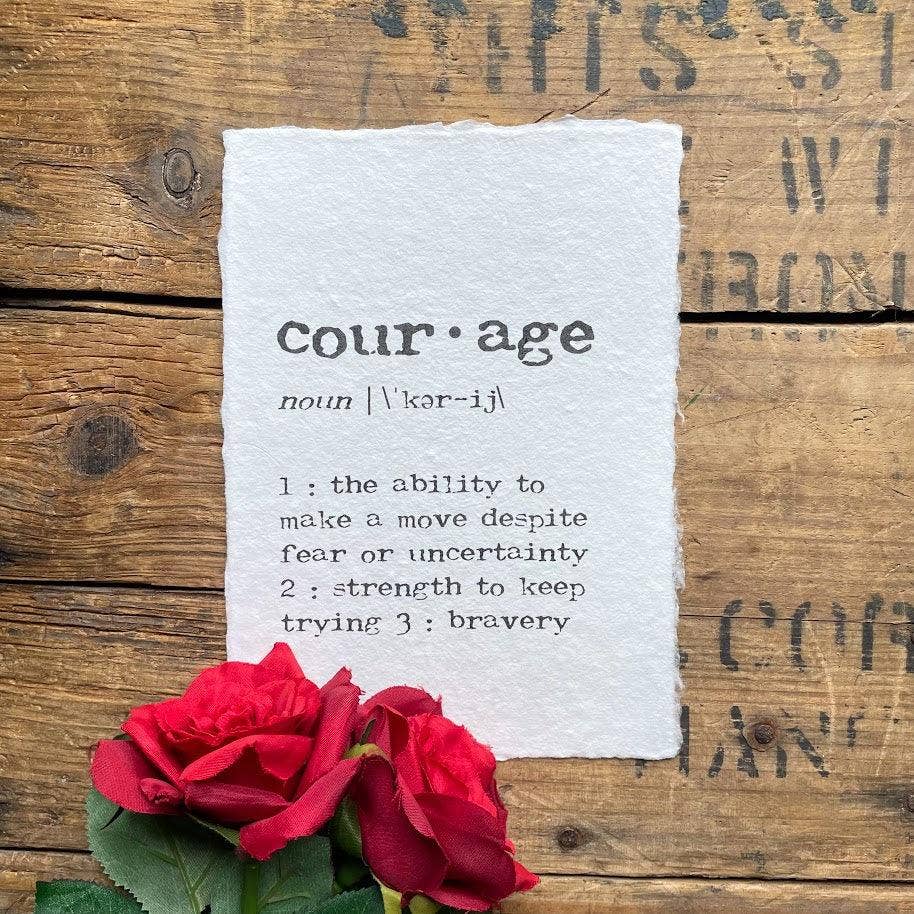 THIS SI
WI
cour·age
noun |\ˈkər-ij\
1 : the ability to
make a move despite
fear or uncertainty
2 : strength to keep
trying 3 : bravery